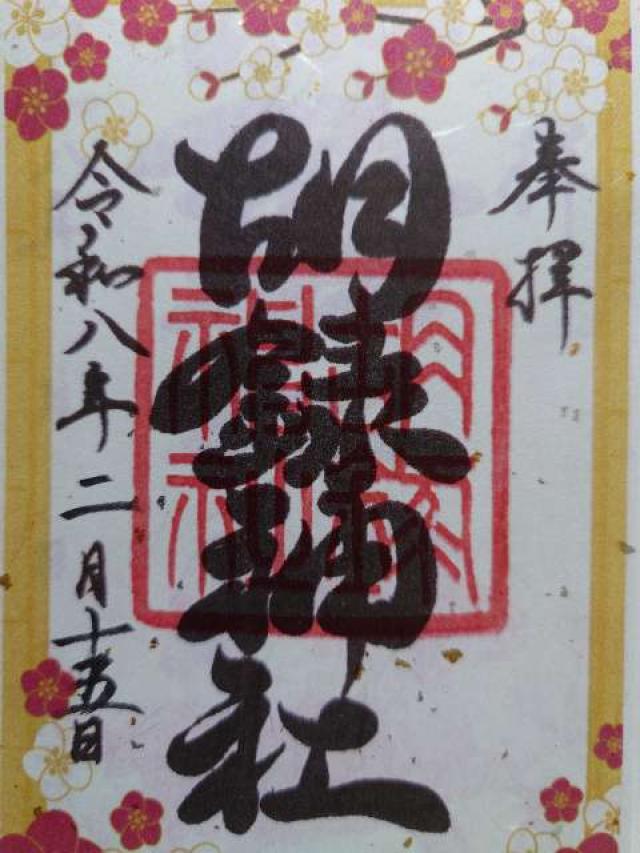 奉拝
胡録神社
令和八年二月十五日